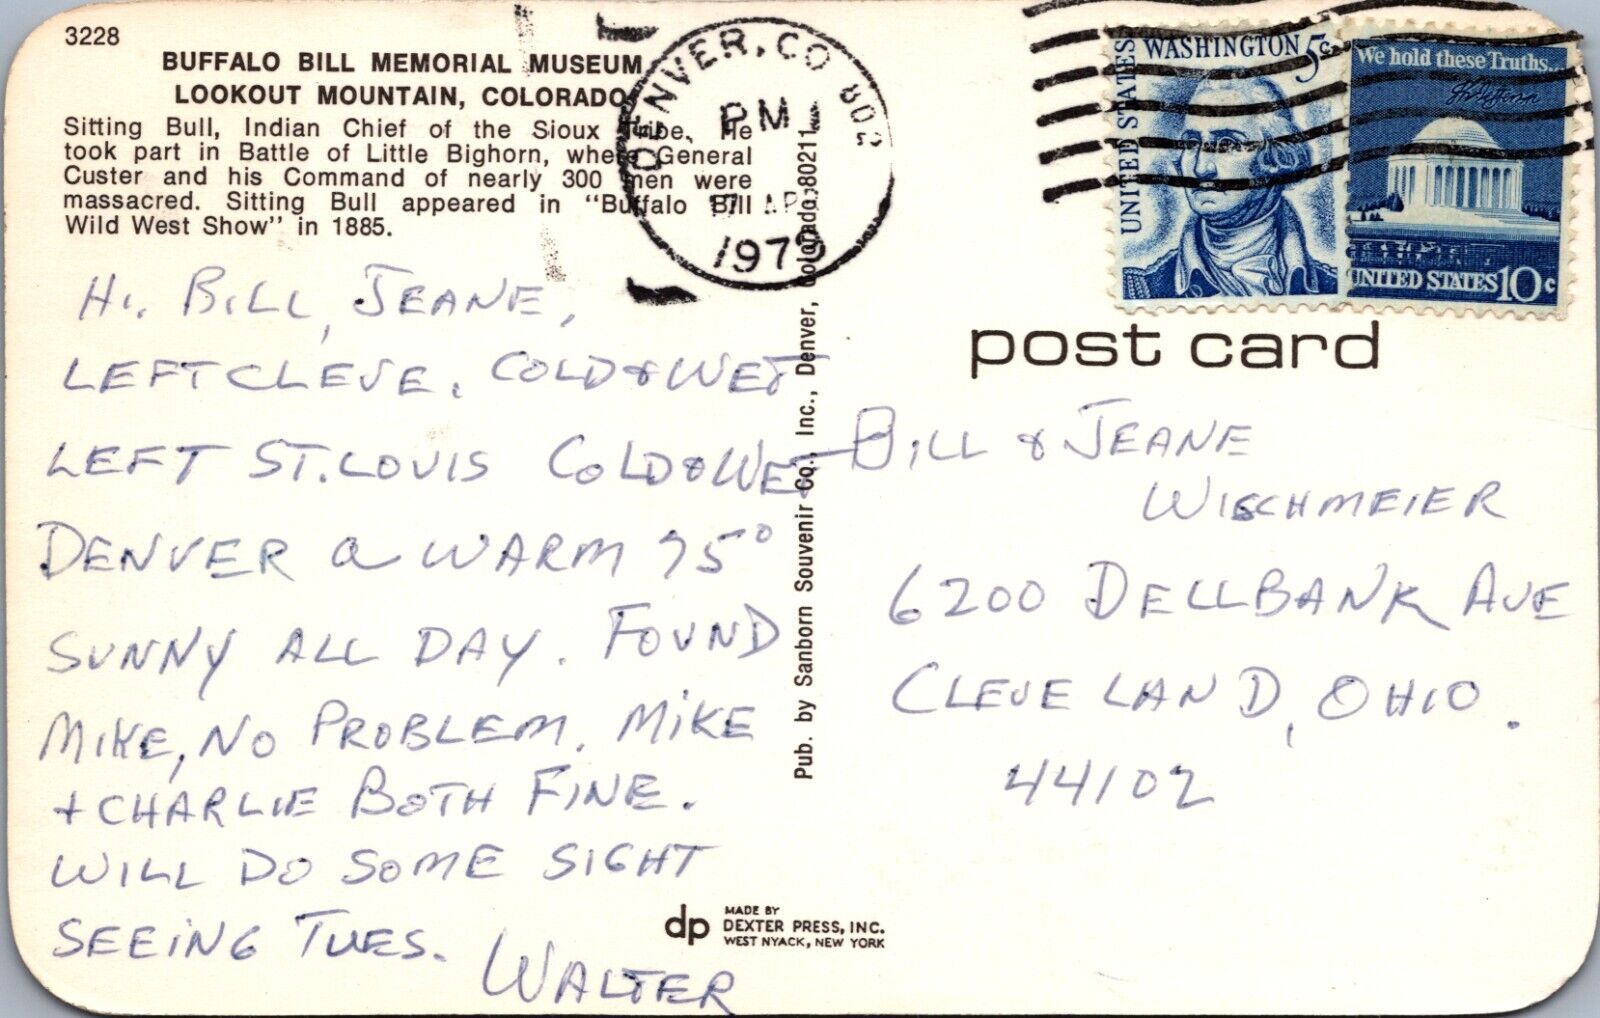 3228
BUFFALO BILL MEMORIAL MUSEUM
LOOKOUT MOUNTAIN, COLORADO
Sitting Bull, Indian Chief of the Sioux Tribe. He
took part in Battle of Little Bighorn, where General
Custer and his Command of nearly 300 men were
massacred. Sitting Bull appeared in "Buffalo Bill
Wild West Show" in 1885.
HI. BILL, JEANE,
LEFT CLEVE. COLD & WET
LEFT ST. LOUIS COLD & WET
DENVER A WARM 75°
SUNNY ALL DAY. FOUND
MIKE, NO PROBLEM. MIKE
+ CHARLIE BOTH FINE.
WILL DO SOME SIGHT
SEEING TUES.
WALTER
DENVER, CO 802
PM
17 APR
1979
Pub. by Sanborn Souvenir Co., Inc., Denver, Colorado 80211
MADE BY
dp DEXTER PRESS, INC.
WEST NYACK, NEW YORK
UNITED STATES
WASHINGTON 5c
We hold these Truths...
Th Jefferson
UNITED STATES 10c
post card
BILL & JEANE
WISCHMEIER
6200 DELLBANK AVE
CLEVELAND, OHIO.
44102